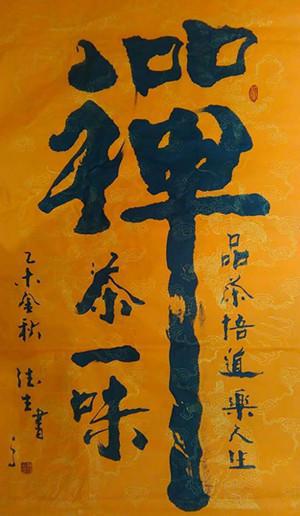 禪
茶一味
品茶悟道樂人生
乙未金秋
書